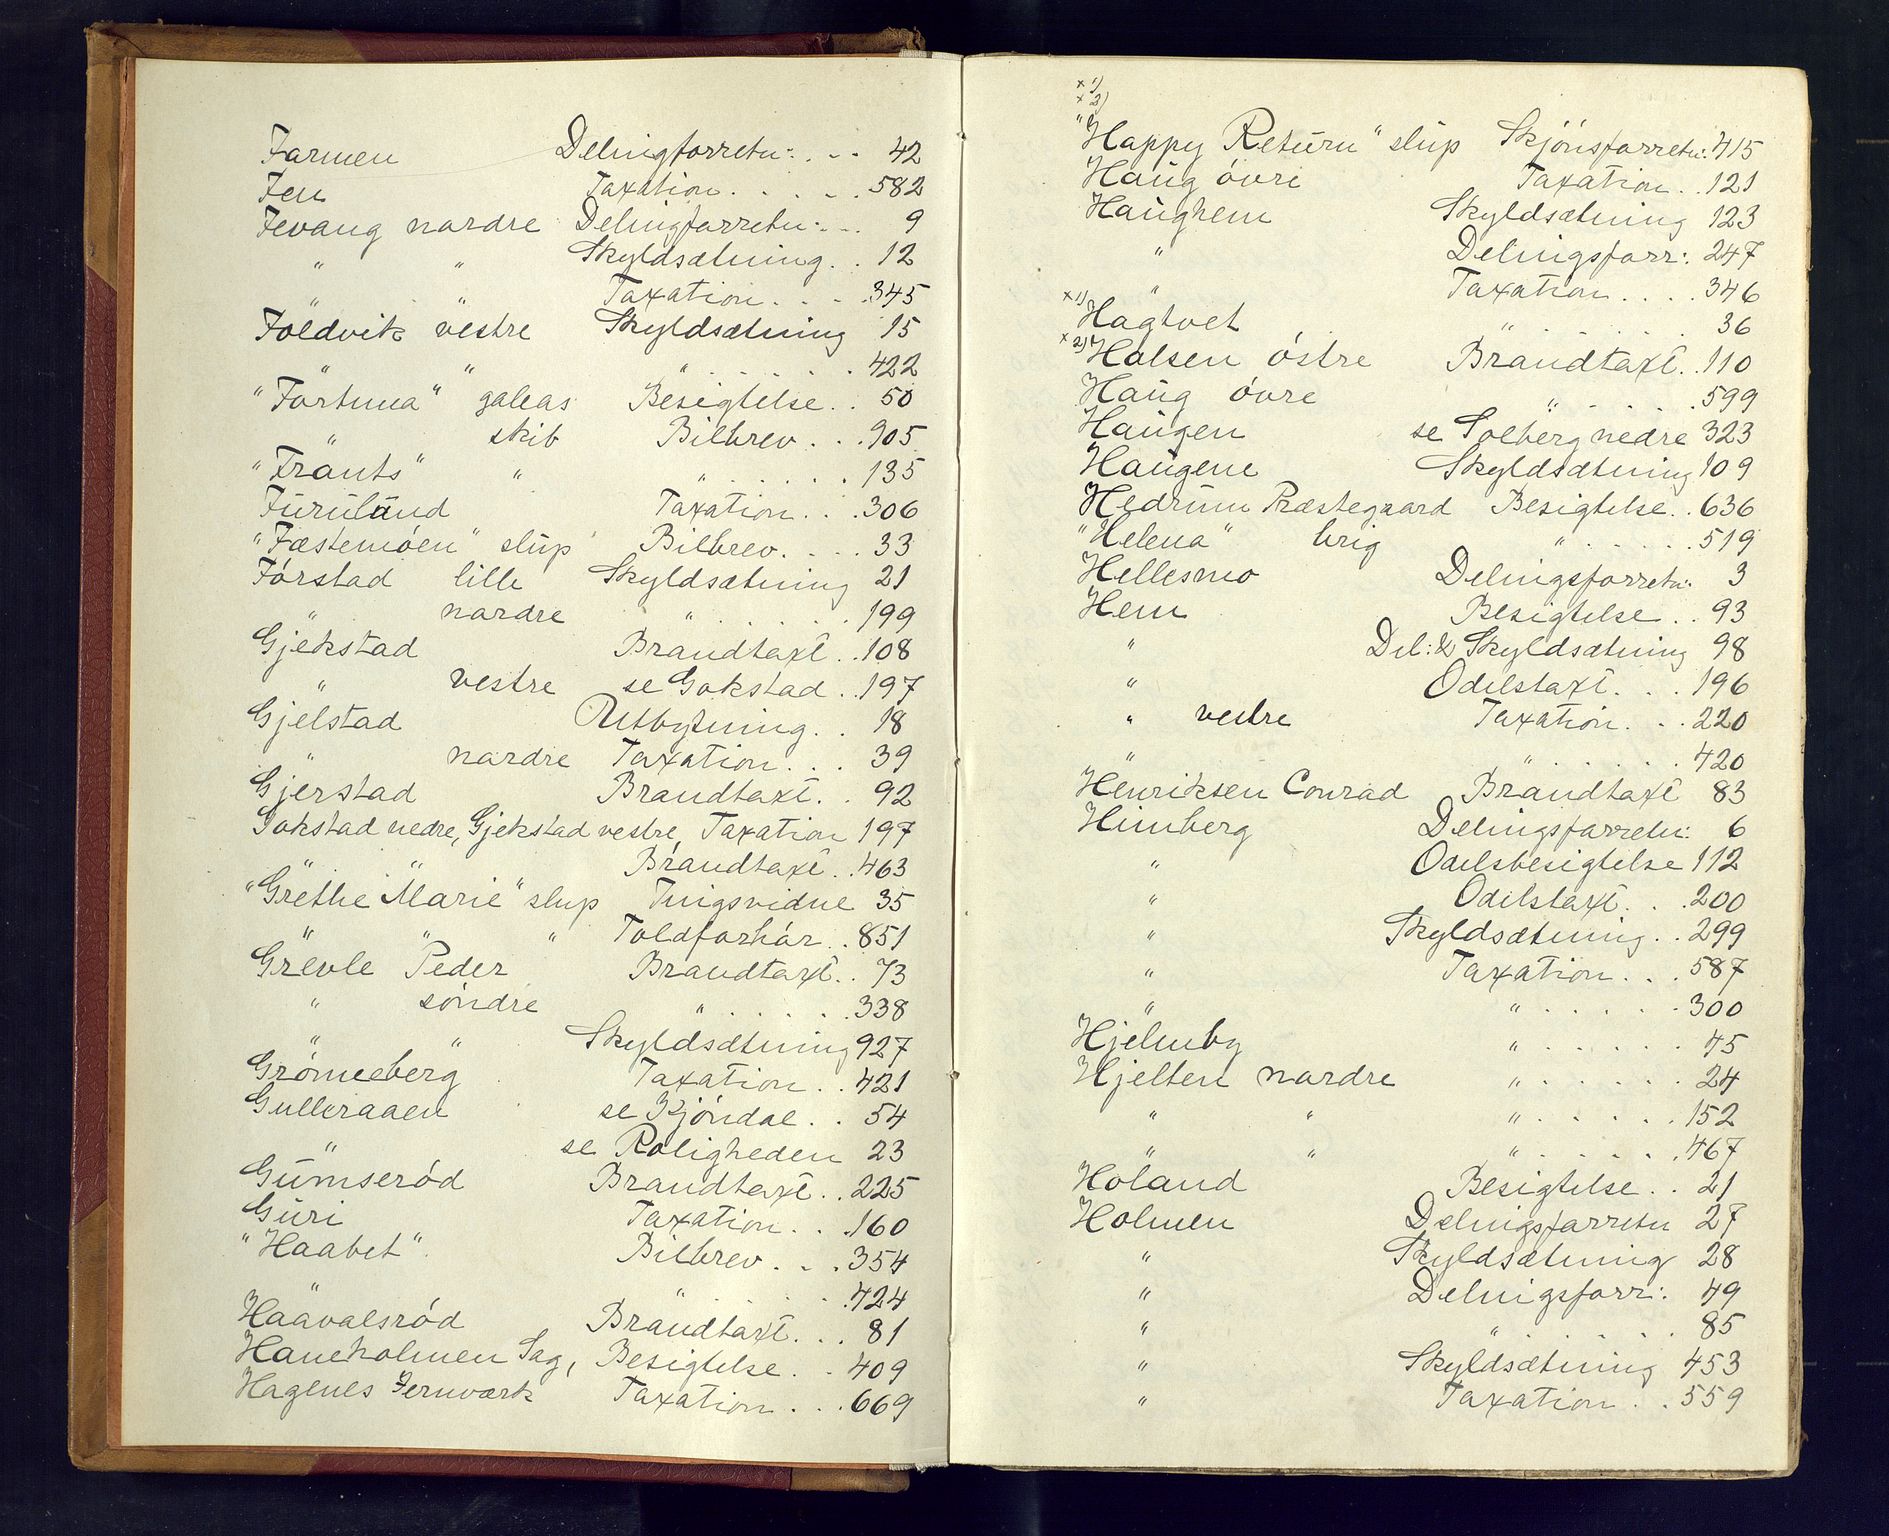 Farmen Delingforretn: . . . 42
Fen Taxation . . . . . 582
Fevang nordre Delingforretn: . . . 9
" " Skyldsætning . . 12
" " Taxation . . . . . 345
Foldvik vestre Skyldsætning 15
" " " . . . . . . 422
"Fortuna" galeas Besigtelse . . 50
" skib Bilbrev . . . 905
"Frants" " " . . . . . . 135
Furulund Taxation . . . 306
"Fæstemöen" slup Bilbrev . . . . 33
Förstad lille Skyldsætning 21
" nordre " . . . . . . 199
Gjekstad Brandtaxt . . 108
" vestre se Gokstad . . 197
Gjelstad Utbytning . . 18
" nordre Taxation . . . 39
Gjerstad Brandtaxt . . 92
Gokstad nedre, Gjekstad vestre, Taxation 197
" " Brandtaxt . . 463
"Grethe Marie" slup Tingsvidne 35
" " " Toldforhör . . 851
Grevle Peder Brandtaxt . . 73
" söndre " . . . . . . 338
" " Skyldsætning 927
Grömeberg Taxation . . 421
Gulleraaen se Kjöndal . . 54
" se Roligheden 23
Gumseröd Brandtaxt . . 225
Guri Taxation . . . 160
"Haabet" Bilbrev . . . 354
" . . . . . . 424
Haavalsröd Brandtaxt . . . 81
Haneholmen Sag, Besigtelse . . 409
Hagenes Jernværk Taxation . . . 669
x 1)
x 2)
"Happy Return" slup Skjönsforretn: 415
Haug övre Taxation . . 121
Haughem Skyldsætning 123
" Delingsforr: 247
" Taxation . . . . 346
x1) Hagtvet " . . . . . . 36
x2) Halsen östre Brandtaxt . . 110
Haug övre " . . . . . 599
Haugen se Solberg nedre 323
Haugene Skyldsætning 109
Hedrum Præstegaard Besigtelse . . 636
"Helena" brig " . . . . . . 519
Hellesmo Delingsforretn: 3
Hem Besigtelse . . 93
" Del: & Skyldsætning 98
" Odelstaxt . . . 196
" vestre Taxation . . . 220
" " . . . . . . 420
Henriksen Conrad Brandtaxt 83
Himberg Delingsforretn: 6
" Odelsbesigtelse 112
" Odelstaxt . . . 200
" Skyldsætning . . 299
" Taxation . . . 587
" " . . . . . . 300
Hjelmby " . . . . . . 45
Hjelten nordre " . . . . . . 24
" " " . . . . . . 152
" " " . . . . . . 467
Holand Besigtelse . . 21
Holmen Delingsforretn 27
" Skyldsætning 28
" Delingsforr: 49
" " . . . . . . 85
" Skyldsætning 453
" Taxation . . 559